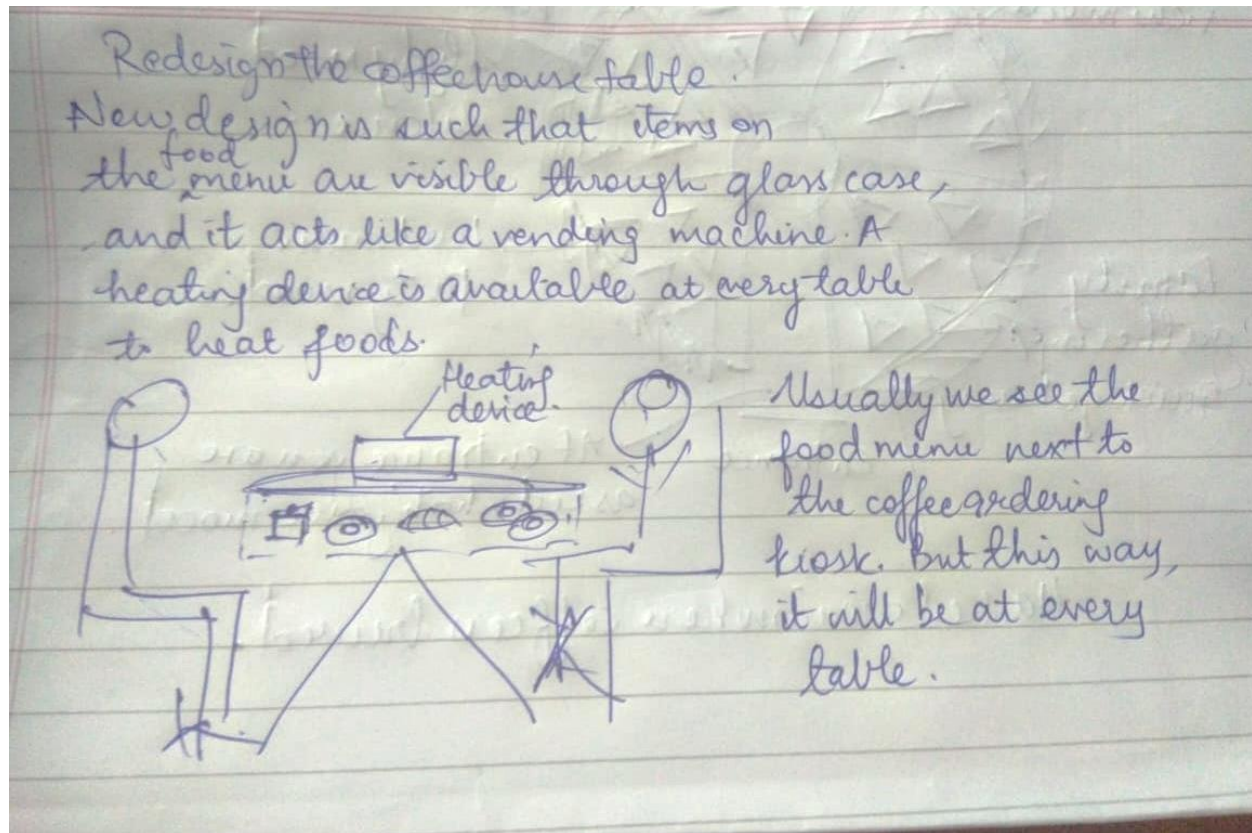 Redesign the coffeehouse table.
New design is such that items on
the food menu are visible through glass case,
and it acts like a vending machine. A
heating device is available at every table
to heat foods.
Heating
device.
Usually we see the
food menu next to
the coffee ordering
kiosk. But this way,
it will be at every
table.